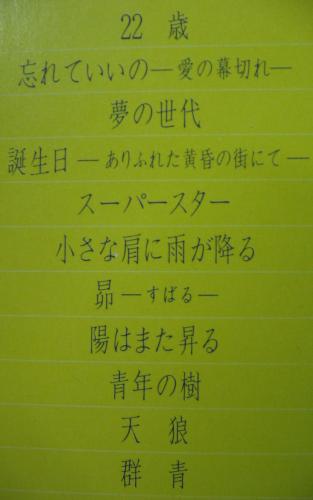 22 歳
忘れていいの―愛の幕切れ―
夢の世代
誕生日―ありふれた黄昏の街にて―
スーパースター
小さな肩に雨が降る
昴―すばる―
陽はまた昇る
青年の樹
天 狼
群 青